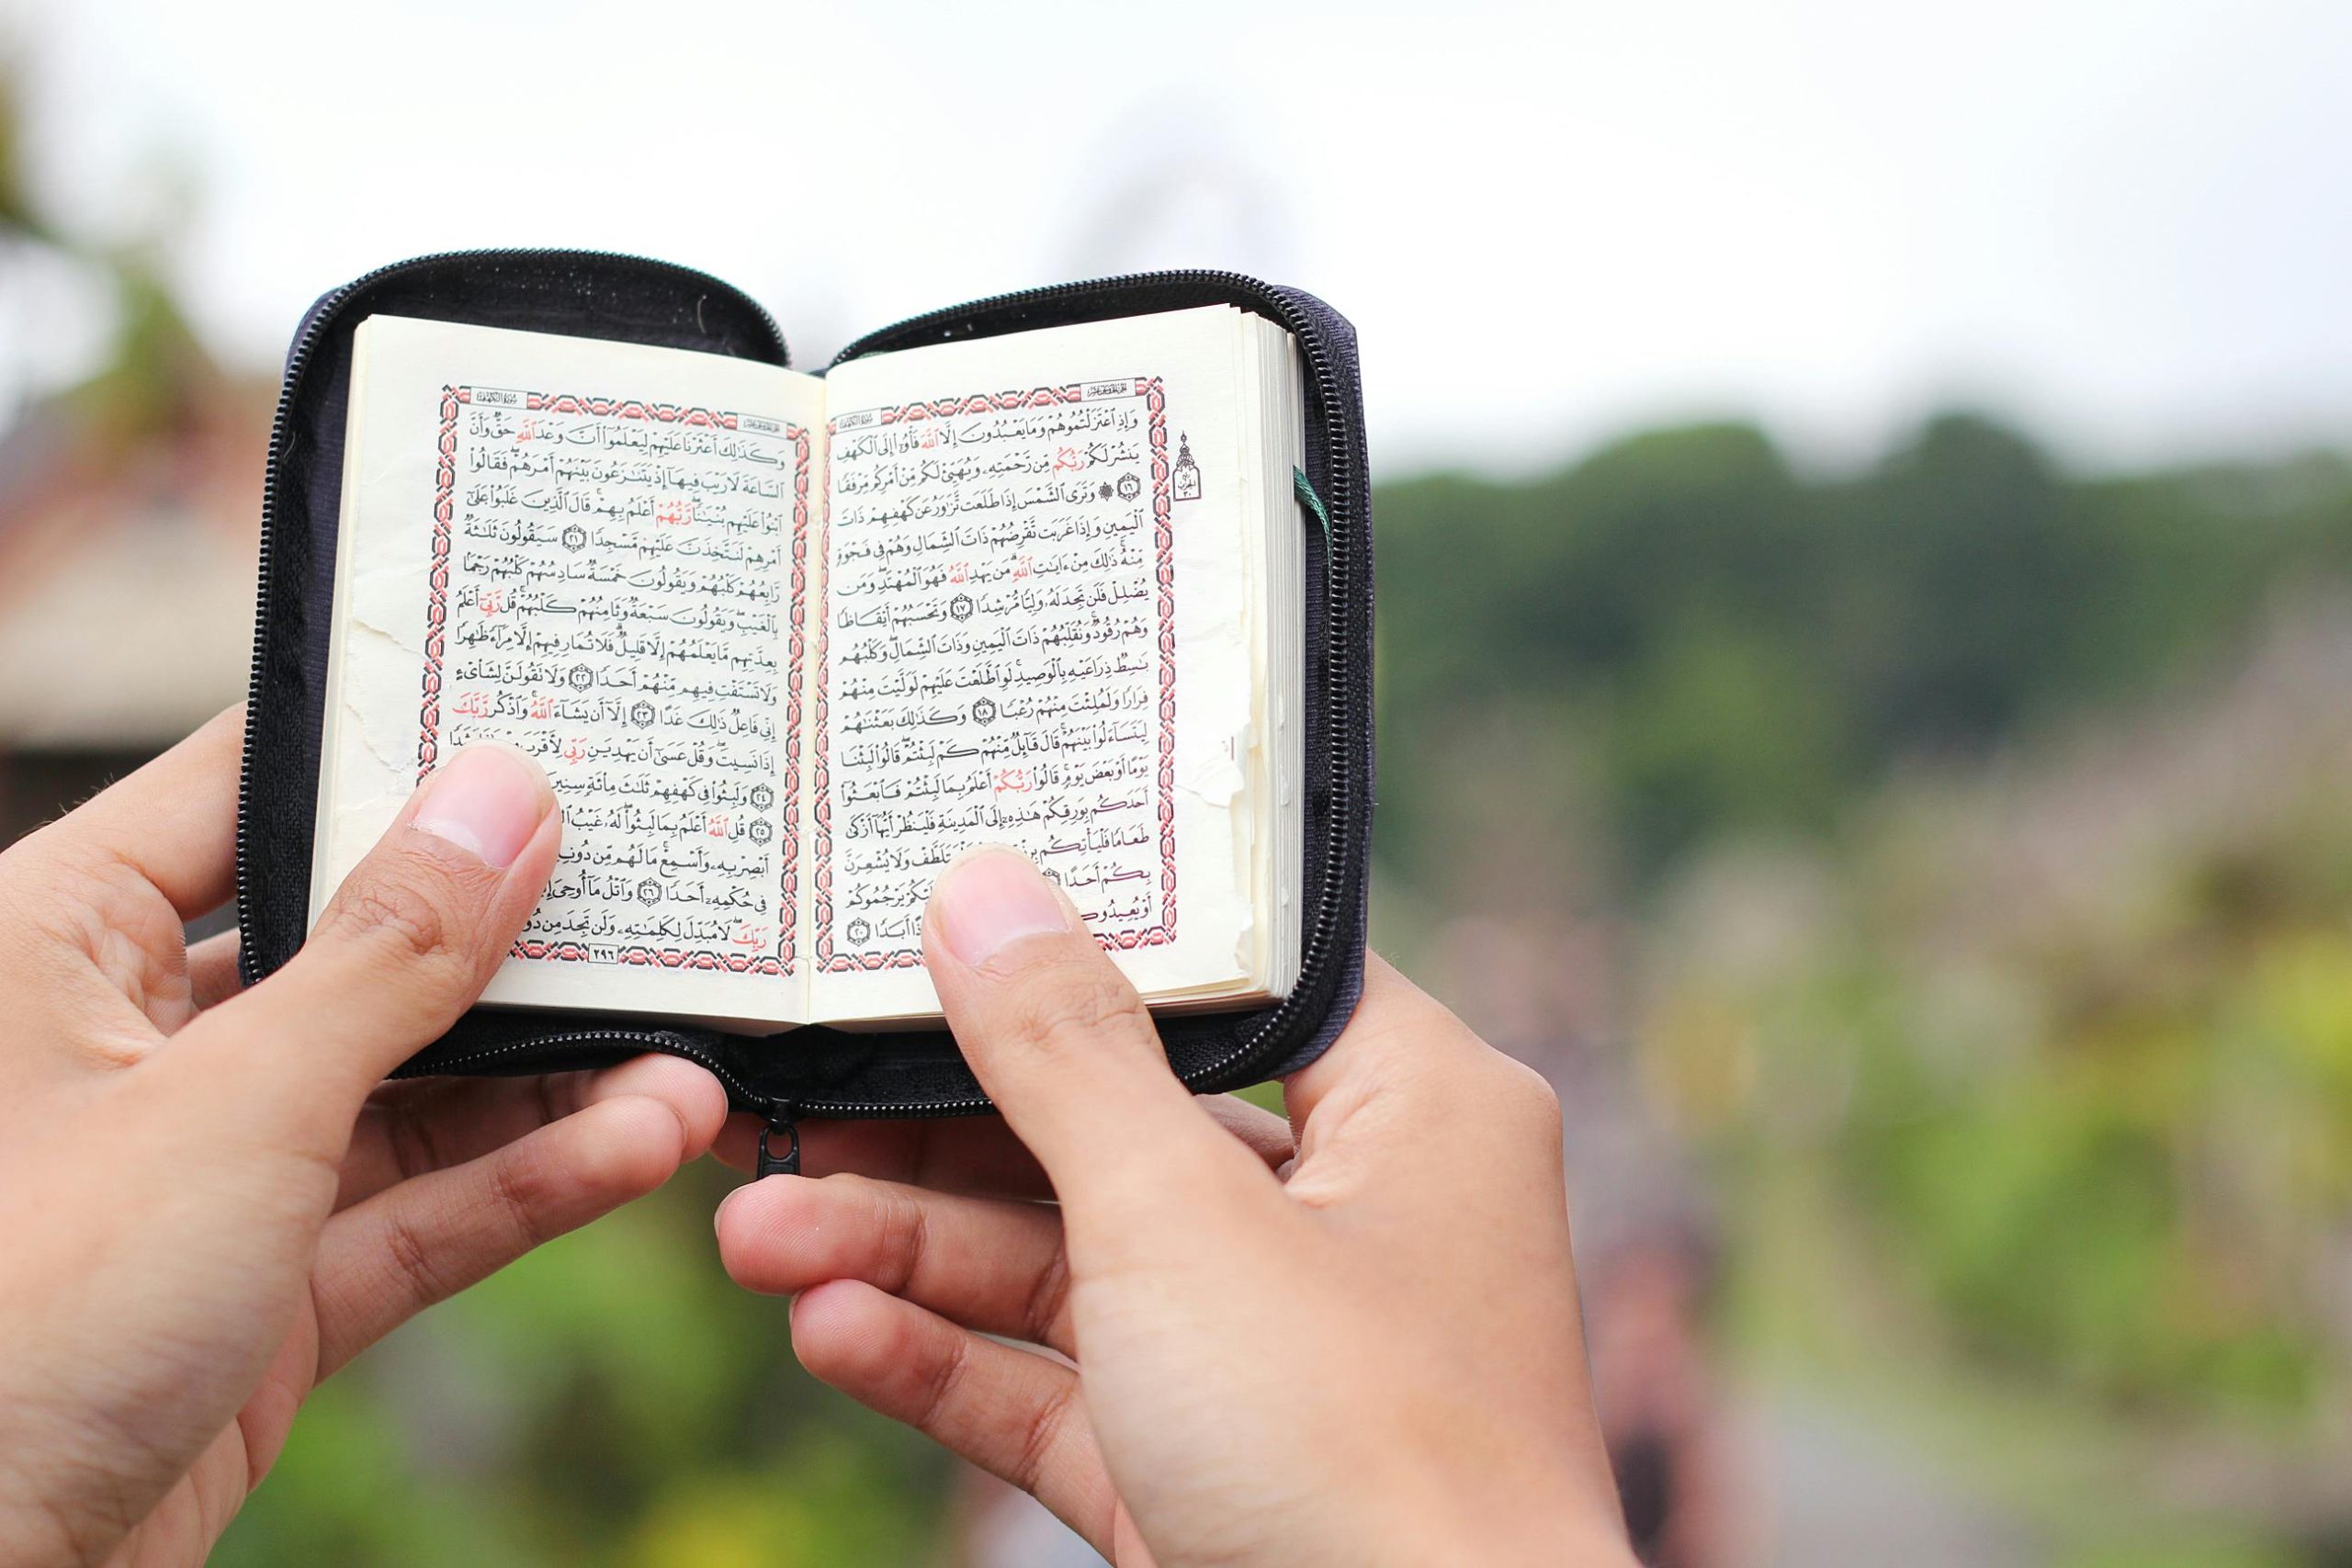 سورة الكهف
وَإِذِ ٱعْتَزَلْتُمُوهُمْ وَمَا يَعْبُدُونَ إِلَّا ٱللَّهَ فَأْوُۥٓا۟ إِلَى ٱلْكَهْفِ
يَنشُرْ لَكُمْ رَبُّكُم مِّن رَّحْمَتِهِۦ وَيُهَيِّئْ لَكُم مِّنْ أَمْرِكُم مِّرْفَقًا
١٦ ۞ وَتَرَى ٱلشَّمْسَ إِذَا طَلَعَت تَّزَٰوَرُ عَن كَهْفِهِمْ ذَاتَ
ٱلْيَمِينِ وَإِذَا غَرَبَت تَّقْرِضُهُمْ ذَاتَ ٱلشِّمَالِ وَهُمْ فِى فَجْوَةٍ
مِّنْهُ ۚ ذَٰلِكَ مِنْ ءَايَٰتِ ٱللَّهِ ۗ مَن يَهْدِ ٱللَّهُ فَهُوَ ٱلْمُهْتَدِ ۖ وَمَن
يُضْلِلْ فَلَن تَجِدَ لَهُۥ وَلِيًّا مُّرْشِدًا ١٧ وَتَحْسَبُهُمْ أَيْقَاظًا
وَهُمْ رُقُودٌ ۚ وَنُقَلِّبُهُمْ ذَاتَ ٱلْيَمِينِ وَذَاتَ ٱلشِّمَالِ ۖ وَكَلْبُهُم
بَٰسِطٌ ذِرَاعَيْهِ بِٱلْوَصِيدِ ۚ لَوِ ٱطَّلَعْتَ عَلَيْهِمْ لَوَلَّيْتَ مِنْهُمْ
فِرَارًا وَلَمُلِئْتَ مِنْهُمْ رُعْبًا ١٨ وَكَذَٰلِكَ بَعَثْنَٰهُمْ
لِيَتَسَآءَلُوا۟ بَيْنَهُمْ ۚ قَالَ قَآئِلٌ مِّنْهُمْ كَمْ لَبِثْتُمْ ۖ قَالُوا۟ لَبِثْنَا
يَوْمًا أَوْ بَعْضَ يَوْمٍ ۚ قَالُوا۟ رَبُّكُمْ أَعْلَمُ بِمَا لَبِثْتُمْ فَٱبْعَثُوٓا۟
أَحَدَكُم بِوَرِقِكُمْ هَٰذِهِۦٓ إِلَى ٱلْمَدِينَةِ فَلْيَنظُرْ أَيُّهَآ أَزْكَىٰ
طَعَامًا فَلْيَأْتِكُم وَلَا يُشْعِرَنَّ
بِكُمْ أَحَدًا يَرْجُمُوكُمْ
أَوْ أَبَدًا ٢٠
سورة الكهف
وَكَذَٰلِكَ أَعْثَرْنَا عَلَيْهِمْ لِيَعْلَمُوٓا۟ أَنَّ وَعْدَ ٱللَّهِ حَقٌّ وَأَنَّ
ٱلسَّاعَةَ لَا رَيْبَ فِيهَآ إِذْ يَتَنَٰزَعُونَ بَيْنَهُمْ أَمْرَهُمْ ۖ فَقَالُوا۟
ٱبْنُوا۟ عَلَيْهِم بُنْيَٰنًا ۖ رَّبُّهُمْ أَعْلَمُ بِهِمْ ۚ قَالَ ٱلَّذِينَ غَلَبُوا۟ عَلَىٰٓ
أَمْرِهِمْ لَنَتَّخِذَنَّ عَلَيْهِم مَّسْجِدًا ٢١ سَيَقُولُونَ ثَلَٰثَةٌ
رَّابِعُهُمْ كَلْبُهُمْ وَيَقُولُونَ خَمْسَةٌ سَادِسُهُمْ كَلْبُهُمْ رَجْمًۢا
بِٱلْغَيْبِ ۖ وَيَقُولُونَ سَبْعَةٌ وَثَامِنُهُمْ كَلْبُهُمْ ۚ قُل رَّبِّىٓ أَعْلَمُ
بِعِدَّتِهِم مَّا يَعْلَمُهُمْ إِلَّا قَلِيلٌ ۗ فَلَا تُمَارِ فِيهِمْ إِلَّا مِرَآءً ظَٰهِرًا
وَلَا تَسْتَفْتِ فِيهِم مِّنْهُمْ أَحَدًا ٢٢ وَلَا تَقُولَنَّ لِشَا۟ىْءٍ
إِنِّى فَاعِلٌ ذَٰلِكَ غَدًا ٢٣ إِلَّآ أَن يَشَآءَ ٱللَّهُ ۚ وَٱذْكُر رَّبَّكَ
إِذَا نَسِيتَ وَقُلْ عَسَىٰٓ أَن يَهْدِيَنِ رَبِّى لِأَقْرَبَ
٢٤ وَلَبِثُوا۟ فِى كَهْفِهِمْ ثَلَٰثَ مِا۟ئَةٍ سِنِينَ
٢٥ قُلِ ٱللَّهُ أَعْلَمُ بِمَا لَبِثُوا۟ ۖ لَهُۥ غَيْبُ
أَبْصِرْ بِهِۦ وَأَسْمِعْ ۚ مَا لَهُم مِّن
فِى حُكْمِهِۦٓ أَحَدًا ٢٦ وَٱتْلُ مَآ أُوحِىَ
رَبِّكَ ۖ لَا مُبَدِّلَ لِكَلِمَٰتِهِۦ وَلَن تَجِدَ مِن
٢٩٦